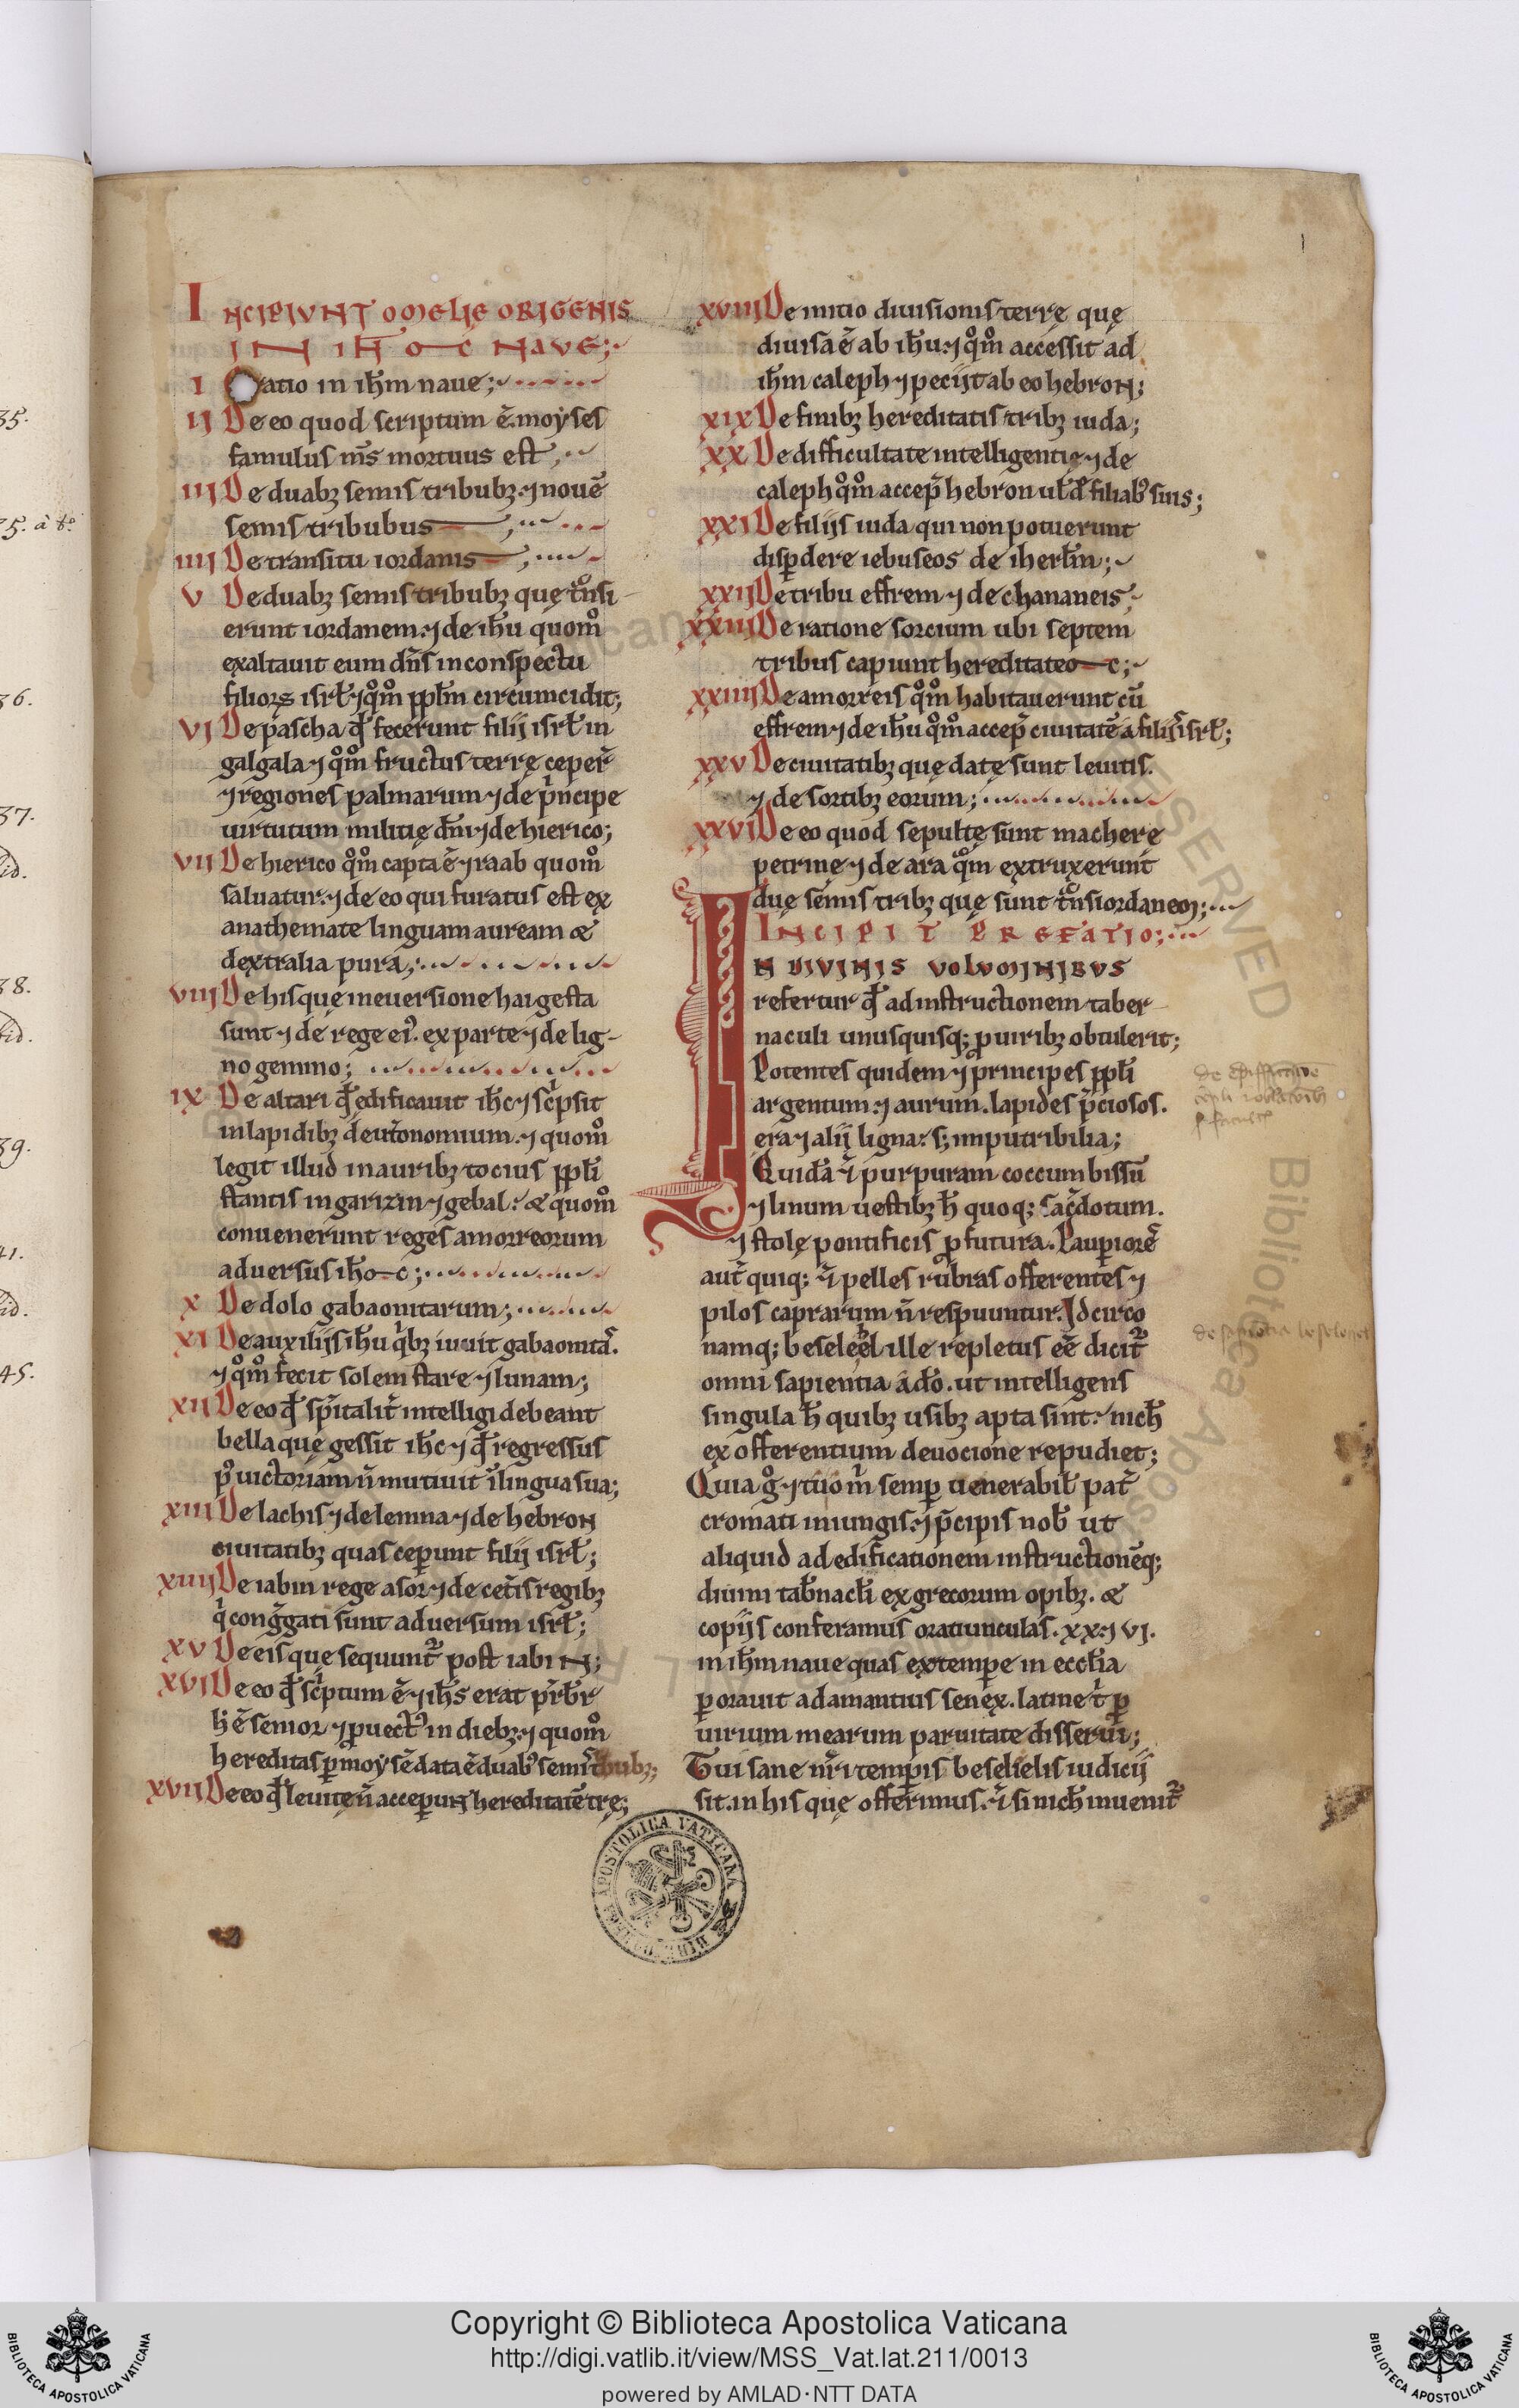 INCIPIVNT OMELIE ORIGENIS
IN IHOC NAVE;
I Oratio in ih̅m naue;
II De eo quod scriptum ē. moẏses
famulus m̅s mortuus est;
III De duabꝫ semis tribubꝫ. ⁊ nouē
semis tribubus;
IIII De transitu iordanis;
V De duabꝫ semis tribubꝫ quę t̅nsi
erunt iordanem. ⁊ de ih̅u quom̊
exaltauit eum dn̅s in conspectu
filioꝝ isrł. ⁊ qm̊ ppłm circumcidit;
VI De pascha qđ fecerunt filij isrł in
galgala ⁊ qm̊ fructus terrę ceper̅
⁊ regiones palmarum ⁊ de pͥncipe
uirtutum militię dn̅i ⁊ de hierico;
VII De hierico qm̊ capta ē ⁊ raab quom̊
saluatur. ⁊ de eo qui furatus est ex
anathemate linguam auream &
dextralia pura;
VIII De his quę in euersione hai gesta
sunt ⁊ de rege eiꝰ. ex parte ⁊ de lig-
no gemino;
IX De altari qđ ędificauit ih̅c ⁊ scͥpsit
in lapidibꝫ deut̅onomium. ⁊ quom̊
legit illud in auribꝫ tocius ppłi
stantis in garizin ⁊ gebal. & quom̊
conuenerunt reges amorreorum
aduersus ih̅oc;
X De dolo gabaonitarum;
XI De auxilijs ih̅u qͥbꝫ iuuit gabaonitaˢ.
⁊ qm̊ fecit solem stare ⁊ lunam;
XII De eo qđ sp̅italit̅ intelligi debeant
bella quę gessit ih̅c ⁊ qđ regressus
pꝰ uictoriam n̅ mutiuit i̅ lingua sua;
XIII De lachis ⁊ de lemna ⁊ de hebron
ciuitatibꝫ quas ceperunt filij isrł;
XIIII De iabin rege asor ⁊ de cet̅is regibꝫ
qͥ cong̅gati sunt aduersum isrł;
XV De eis quę sequunt̅ post iabin;
XVI De eo qđ scͥptum ē ⁊ ih̅s erat pr̅br̅
h̅ ē senior ⁊ ꝓuectꝰ in diebꝫ. ⁊ quom̊
hereditas ꝑ moẏsē data ē duabꝰ semis tribubꝫ;
XVII De eo qđ leuitę n̅ acceperunt hereditatē tr̅ę;
XVIII De initio diuisionis terrę quę
diuisa ē ab ih̅u. ⁊ qm̊ accessit ad
ih̅m caleph ⁊ pecijt ab eo hebron;
XIX De finibꝫ hereditatis tribꝫ iuda;
XX De difficultate intelligentię ⁊ de
caleph qm̊ accep̅ hebron ut d̅ filiabꝰ suis;
XXI De filijs iuda qui non potuerunt
disꝑdere iebuseos de iherłm;
XXII De tribu effrem ⁊ de chananeis;
XXIII De ratione sorcium ubi septem
tribus capiunt hereditateoc;
XXIIII De amorreis qm̊ habitauerunt cū
effrem ⁊ de ih̅u qm̊ accep̅ ciuitatē a filijs isrł;
XXV De ciuitatibꝫ quę datę sunt leuitis.
⁊ de sortibꝫ eorum;
XXVI De eo quod sepultę sunt macherę
petrinę ⁊ de ara qm̊ extruxerunt
duę semis tribꝫ quę sunt t̅ns iordanem;
INCIPIT PREFATIO;
IN DIVINIS VOLVMINIBVS
refertur qđ ad instructionem taber-
naculi unusquisqꝫ ꝓ uiribꝫ obtulerit;
Potentes quidem ⁊ principes ppłi
argentum ⁊ aurum. lapides p̅ciosos.
era ⁊ alij ligna. sꝫ imputribilia;
Quidā u̅ purpuram coccum bissū
⁊ linum uestibꝫ h̅ quoqꝫ sac̅dotum.
⁊ stolę pontificis ꝓfutura. Pauꝑiorē
aut̅ quiqꝫ u̅ pelles rubras offerentes ⁊
pilos caprarum n̅ respuuntur. Idcirco
namqꝫ beseleel ille repletus eē dicit̅
omni sapientia a dō. ut intelligens
singula h̅ quibꝫ usibꝫ apta sint. nich̅
ex offerentium deuocione repudiet;
Quia g̊ ⁊ tuo m̅ semꝑ uenerabił pat̅
cromati iniungis. ⁊ p̅cipis nob̅ ut
aliquid ad edificationem instructionēqꝫ
diuini tab̅nacłi ex grecorum opibꝫ. &
copijs conferamus oratiunculas. XX. ⁊ VI.
in ih̅m naue quas ex tempe in eccłia
ꝑorauit adamantius senex. latine t̅ ꝑ
uirium mearum paruitate disserui;
Tui sane m̅i temꝑis beselielis iudicij
sit. in his quę offerimus. u̅ si nich̅ inuenit̅
35.
36.
37.
id.
38.
39.
41.
id.
45.
1
BIBLIOTECA APOSTOLICA VATICANA
Copyright © Biblioteca Apostolica Vaticana
http://digi.vatlib.it/view/MSS_Vat.lat.211/0013
powered by AMLAD·NTT DATA
BIBLIOTECA APOSTOLICA VATICANA
BIBLIOTECA APOSTOLICA VATICANA